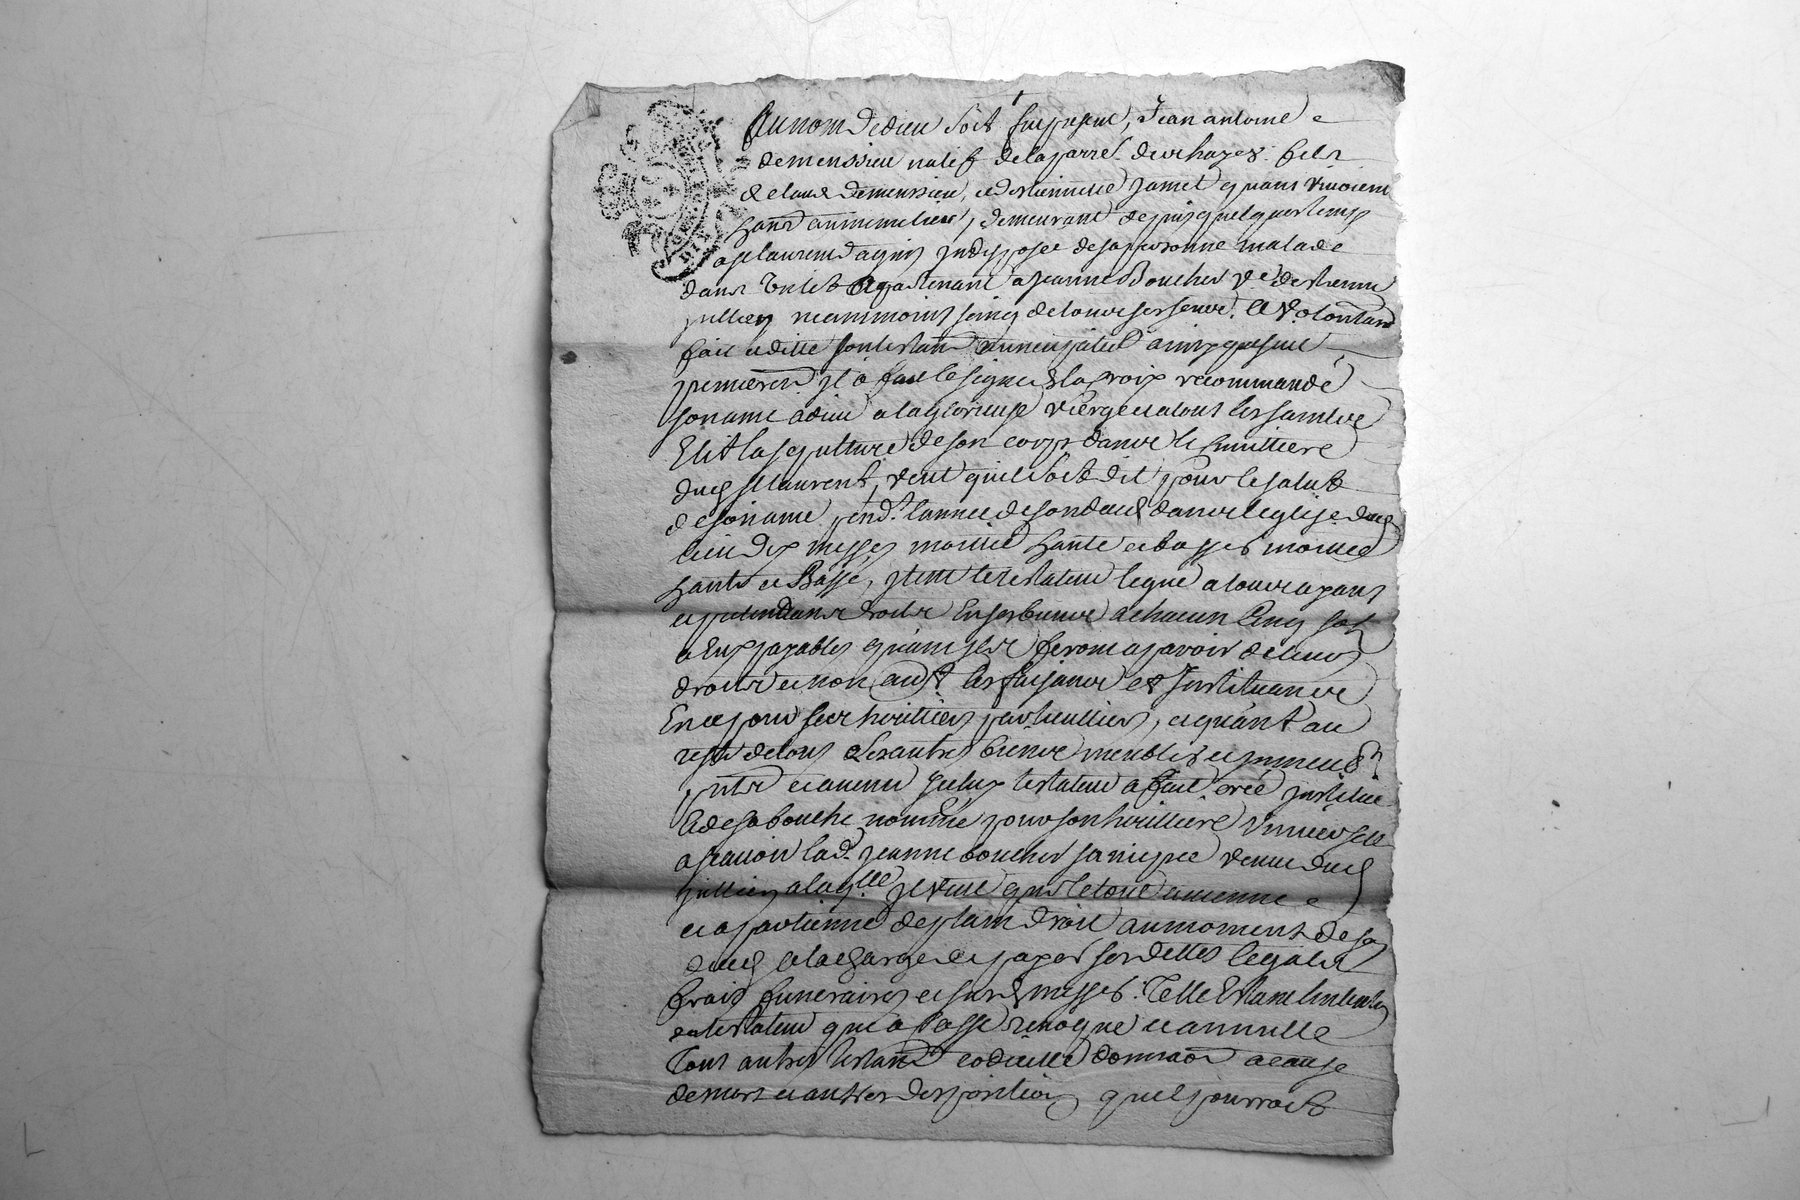 Au nom de dieu soit
Jean antoine
demeussieu natif de laparre. fils
de claud demeussieu, et destiennette Jamet quant vivoient
demeurant depuis quelques temps
a st laurens dagny Indisposee de sa personne malade
dans un lit apartenant a Jeanne Boucher ve destienne
jullien neammoins sainy de tous ses sens, et volontaire
fait et dicte son testamt ainsy que suit
premieremt il a fait le signe de la croix recommandé
son ame a dieu a la glorieuse vierge et a tous les saints
Elit la sepulture de son corps dans le simittiere
dud st laurent, veut quil soit dit pour le salut
de son ame pendt lannee de son deceds dans leglise dud
lieu dix messes moitié haute et basses moitie
haute et Basse, Item le testateur legue a tous ayants
et pretendants droits En ses biens a chacun Cinq sols
a Eux payables quand ils feront aparoir de leurs
droits et non autt les faisants et Instituants
En ce pour ses heritiers particulliers, et quant au
reste de tous Ses autres biens meubles et immeubs
pnts et avenir Iceluy testateur a fait creé Institué
et de sa bouche nommé pour son heritiere vniverselle
a scavoir lad. Jeanne boucher sa niepce veuve dud
jullien a laqlle Il veut que le tout avienne
et apartienne de plain droit au moment de son
deceds a la charge de payer ses dettes legats
frais funeraires et susd messes. Telle Estant lintention
du testateur qui a Cassé revoqué et annulle
Tous autres testamt codicille donnaon a cause
de mort et autres disposition quil pourroit